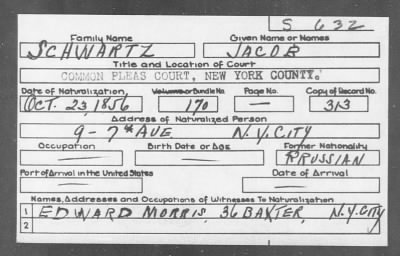 S 632
Family Name Given Name or Names
SCHWARTZ JACOB
Title and Location of Court
COMMON PLEAS COURT, NEW YORK COUNTY.
Date of Naturalization Volume or Bundle No. Page No. Copy of Record No.
OCT. 23, 1856 170 — 313
Address of Naturalized Person
9 - 7th AVE. N.Y. CITY
Occupation Birth Date or Age Former Nationality
PRUSSIAN
Port of Arrival in the United States Date of Arrival
Names, Addresses and Occupations of Witnesses To Naturalization
1 EDWARD MORRIS, 36 BAXTER, N.Y. CITY
2